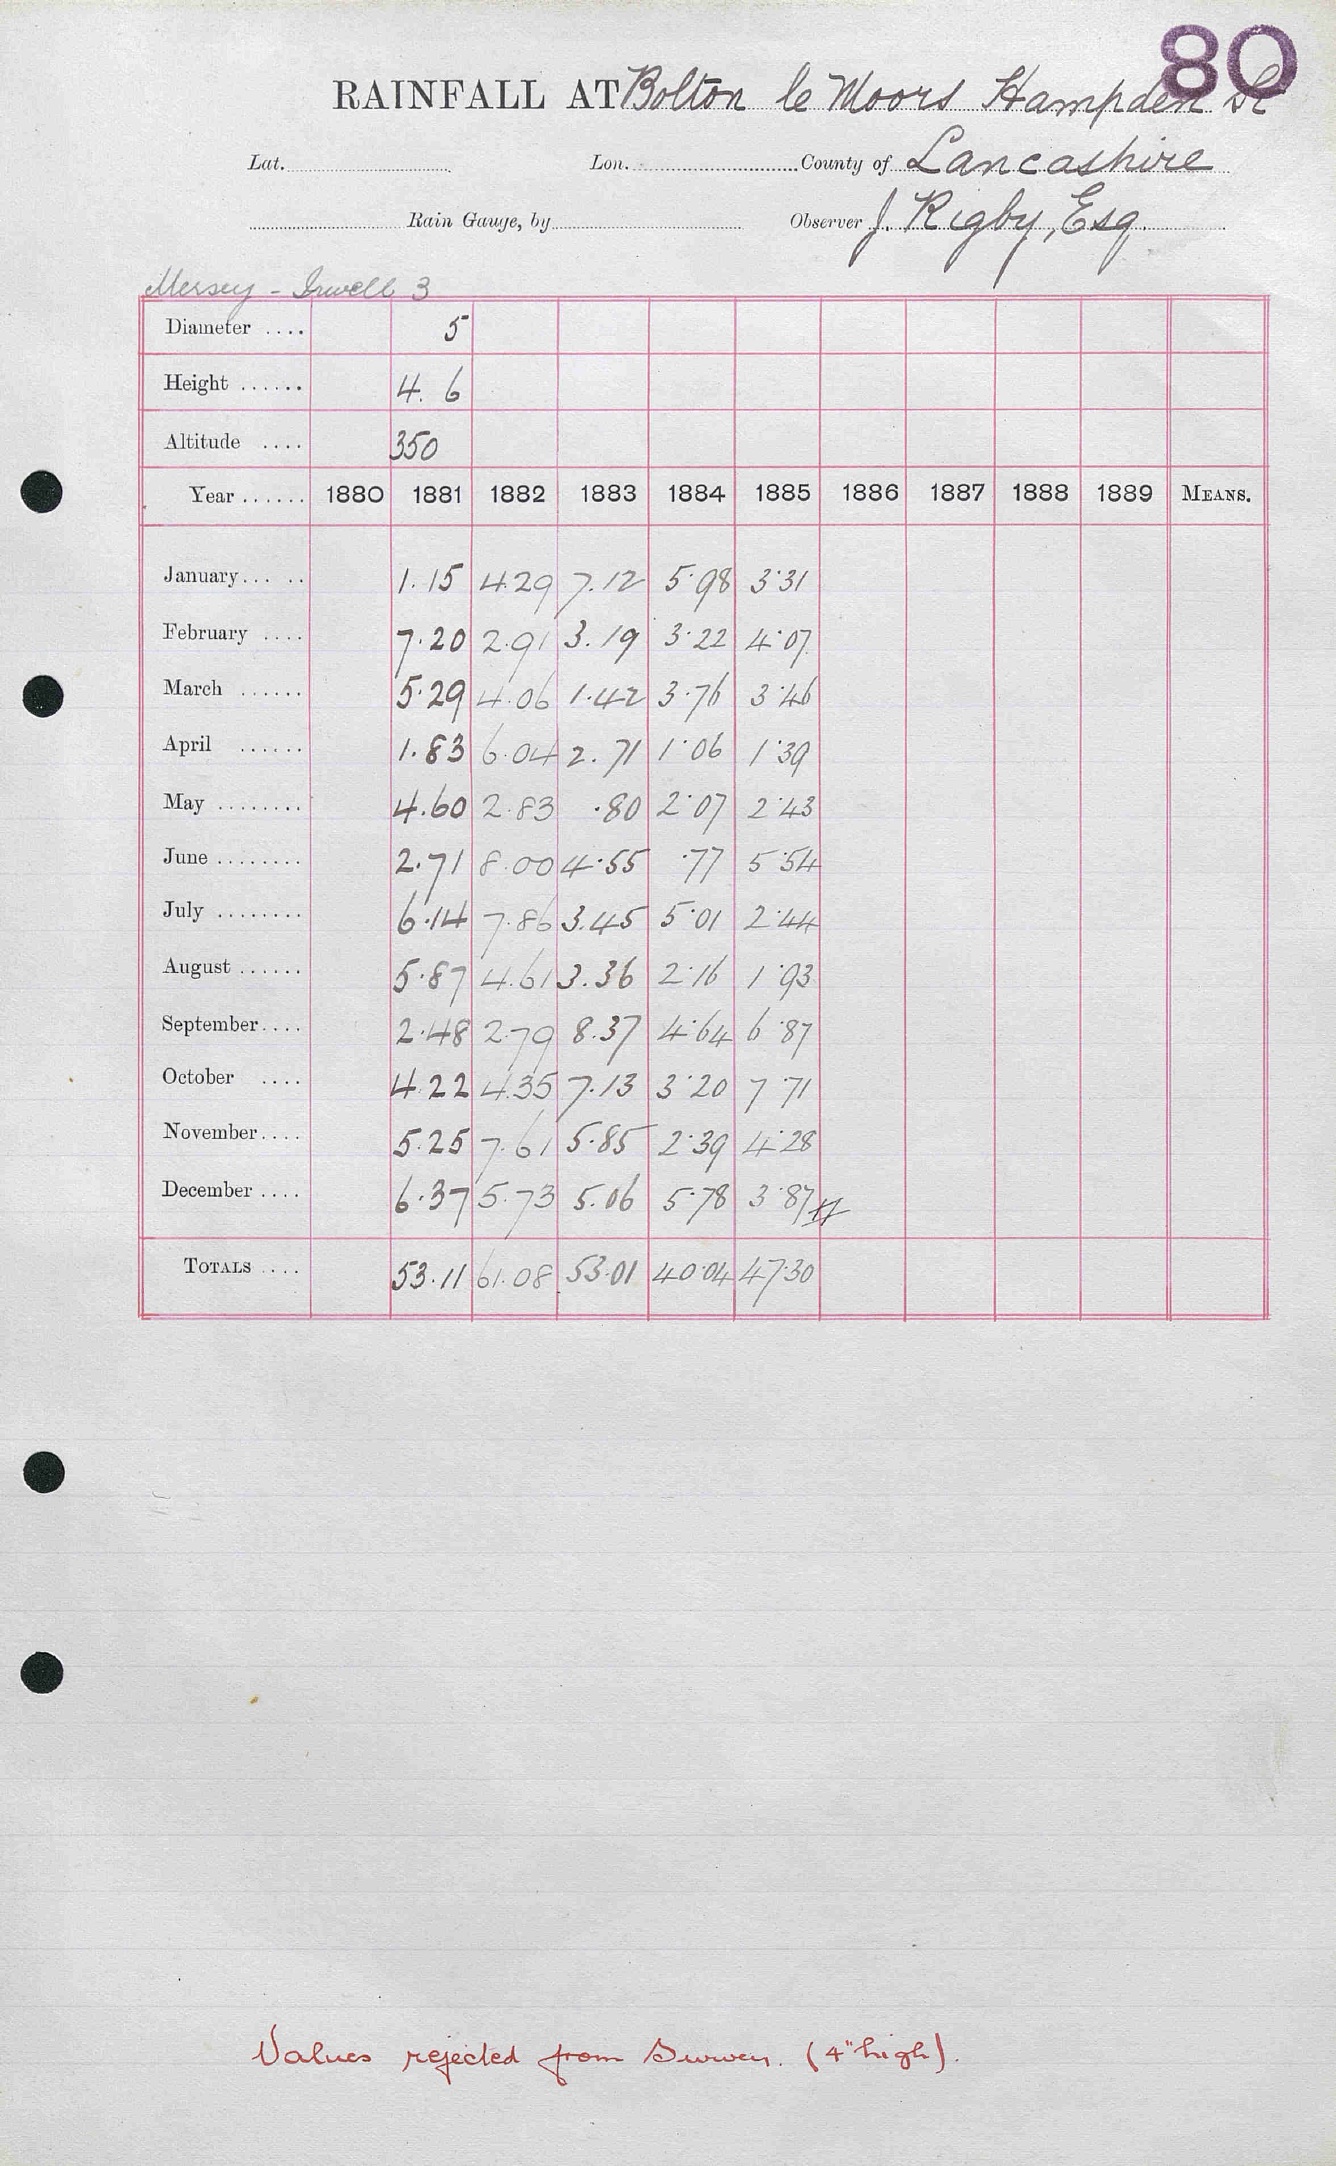 80
RAINFALL AT Bolton le Moors Hampden St
Lat. Lon. County of Lancashire
Rain Gauge, by Observer J. Rigby, Esq.
Mersey - Irwell 3
Diameter .... 5
Height ...... 4. 6
Altitude .... 350
Year ...... 1880 1881 1882 1883 1884 1885 1886 1887 1888 1889 MEANS.
January... .. 1.15 4.29 7.12 5.98 3.31
February .... 7.20 2.91 3.19 3.22 4.07
March ...... 5.29 4.06 1.42 3.76 3.46
April ...... 1.83 6.04 2.71 1.06 1.39
May ........ 4.60 2.83 .80 2.07 2.43
June ........ 2.71 8.00 4.55 .77 5.54
July ........ 6.14 7.86 3.45 5.01 2.44
August ...... 5.87 4.61 3.36 2.16 1.93
September.... 2.48 2.79 8.37 4.64 6.87
October .... 4.22 4.35 7.13 3.20 7.71
November.... 5.25 7.61 5.85 2.39 4.28
December .... 6.37 5.73 5.06 5.78 3.87
TOTALS .... 53.11 61.08 53.01 40.04 47.30
Values rejected from Survey. (4" high).